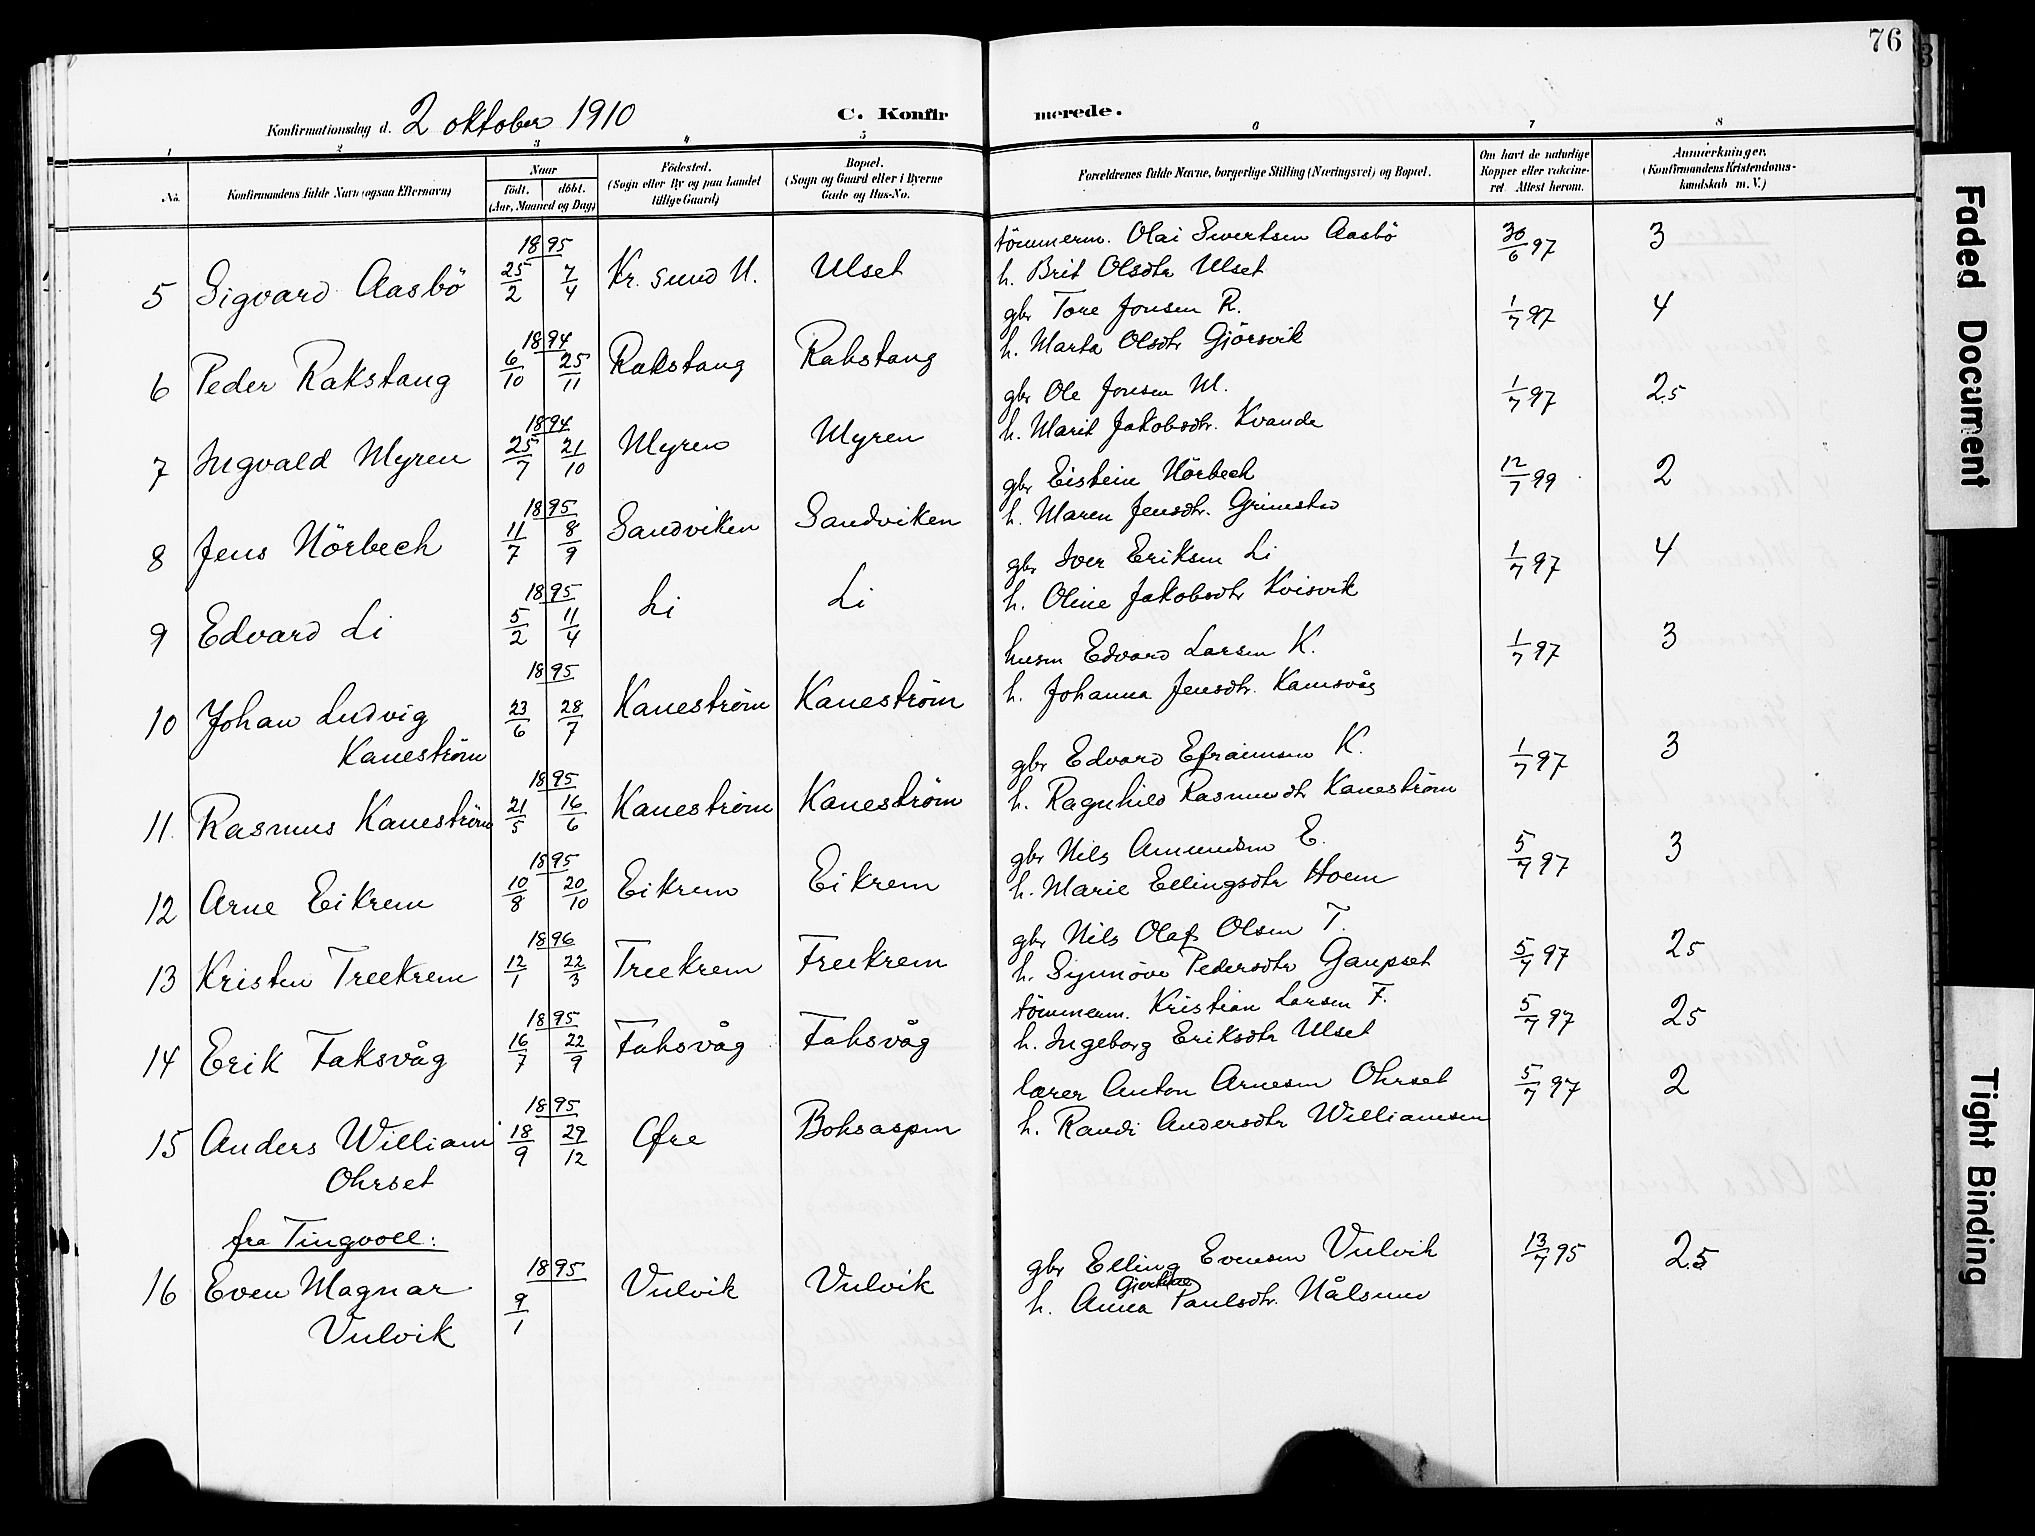 76
Konfirmationsdag d. 2 oktober 1910 C. Konfirmerede.
1 2 3 4 5 6 7 8
No. Konfirmandens fulde Navn (ogsaa Efternavn) Naar født. døbt. (Aar, Maaned og Dag) Födested. (Sogn eller By og paa Landet tillige Gaard) Bopæl. (Sogn og Gaard eller i Byerne Gade og Hus-No. Forældrenes fulde Navne, borgerlige Stilling (Næringsvei) og Bopæl. Om havt de naturlige Kopper eller vaccineret. Attest herom. Anmærkninger. (Konfirmandens Kristendomskundskab m. V.)
5 Sigvard Aasbö 1895 25/2 7/4 Kr. sund N. Ulset tömmerm. Olai Sivertsen Aasbö 30/6 97 3
h. Brit Olsdtr Ulset
6 Peder Rakstang 1894 6/10 25/11 Rakstang Rakstang gbr Tore Jonsen R. 1/7 97 4
h. Marta Olsdtr Gjörsvik
7 Ingvald Myren 1894 25/7 21/10 Myren Myren gbr Ole Jonsen M. 1/7 97 2.5
h. Marit Jakobsdtr. Kvande
8 Jens Nörbech 1895 11/7 8/9 Sandviken Sandviken gbr Eistein Nörbech 12/7 99 2
h. Maren Jensdtr. Grimstad
9 Edvard Li 1895 5/2 11/4 Li Li gbr Iver Eriksen Li 1/7 97 4
h. Oline Jakobsdtr Kvisvik
10 Johan Ludvig 1895 23/6 28/7 Kaneström Kaneström husm Edvard Larsen K. 1/7 97 3
Kaneström h. Johanna Jensdtr. Kamsvåg
11. Rasmus Kaneström 1895 21/5 16/6 Kaneström Kaneström gbr Edvard Efraimsen K. 1/7 97 3
h. Ragnhild Rasmusdtr Kaneström
12 Arne Eikrem 1895 10/8 20/10 Eikrem Eikrem gbr Nils Amundsen E. 5/7 97 3
h. Marie Ellingsdtr Hoem
13 Kristen Treekrem 1896 12/1 22/3 Treekrem Treekrem gbr Nils Olaf Olsen T. 5/7 97 25
h. Synnöve Pedersdtr Gaupset
14 Erik Faksvåg 1895 16/7 22/9 Faksvåg Faksvåg tömmerm. Kristian Larsen F. 5/7 97 25
h. Ingeborg Eriksdtr Ulset
15 Anders William 1895 18/9 29/12 Øre Boksaspen lærer Anton Arnesen Ohrset 5/7 97 2
Ohrset h. Randi Andersdtr Williamsen
fra Tingvoll:
16 Even Magnar 1895 9/1 Vulvik Vulvik gbr Elling Evensen Vulvik 13/7 95 2.5
Vulvik h. Anna Paulsdtr. Nålsund
Faded Document
Tight Binding